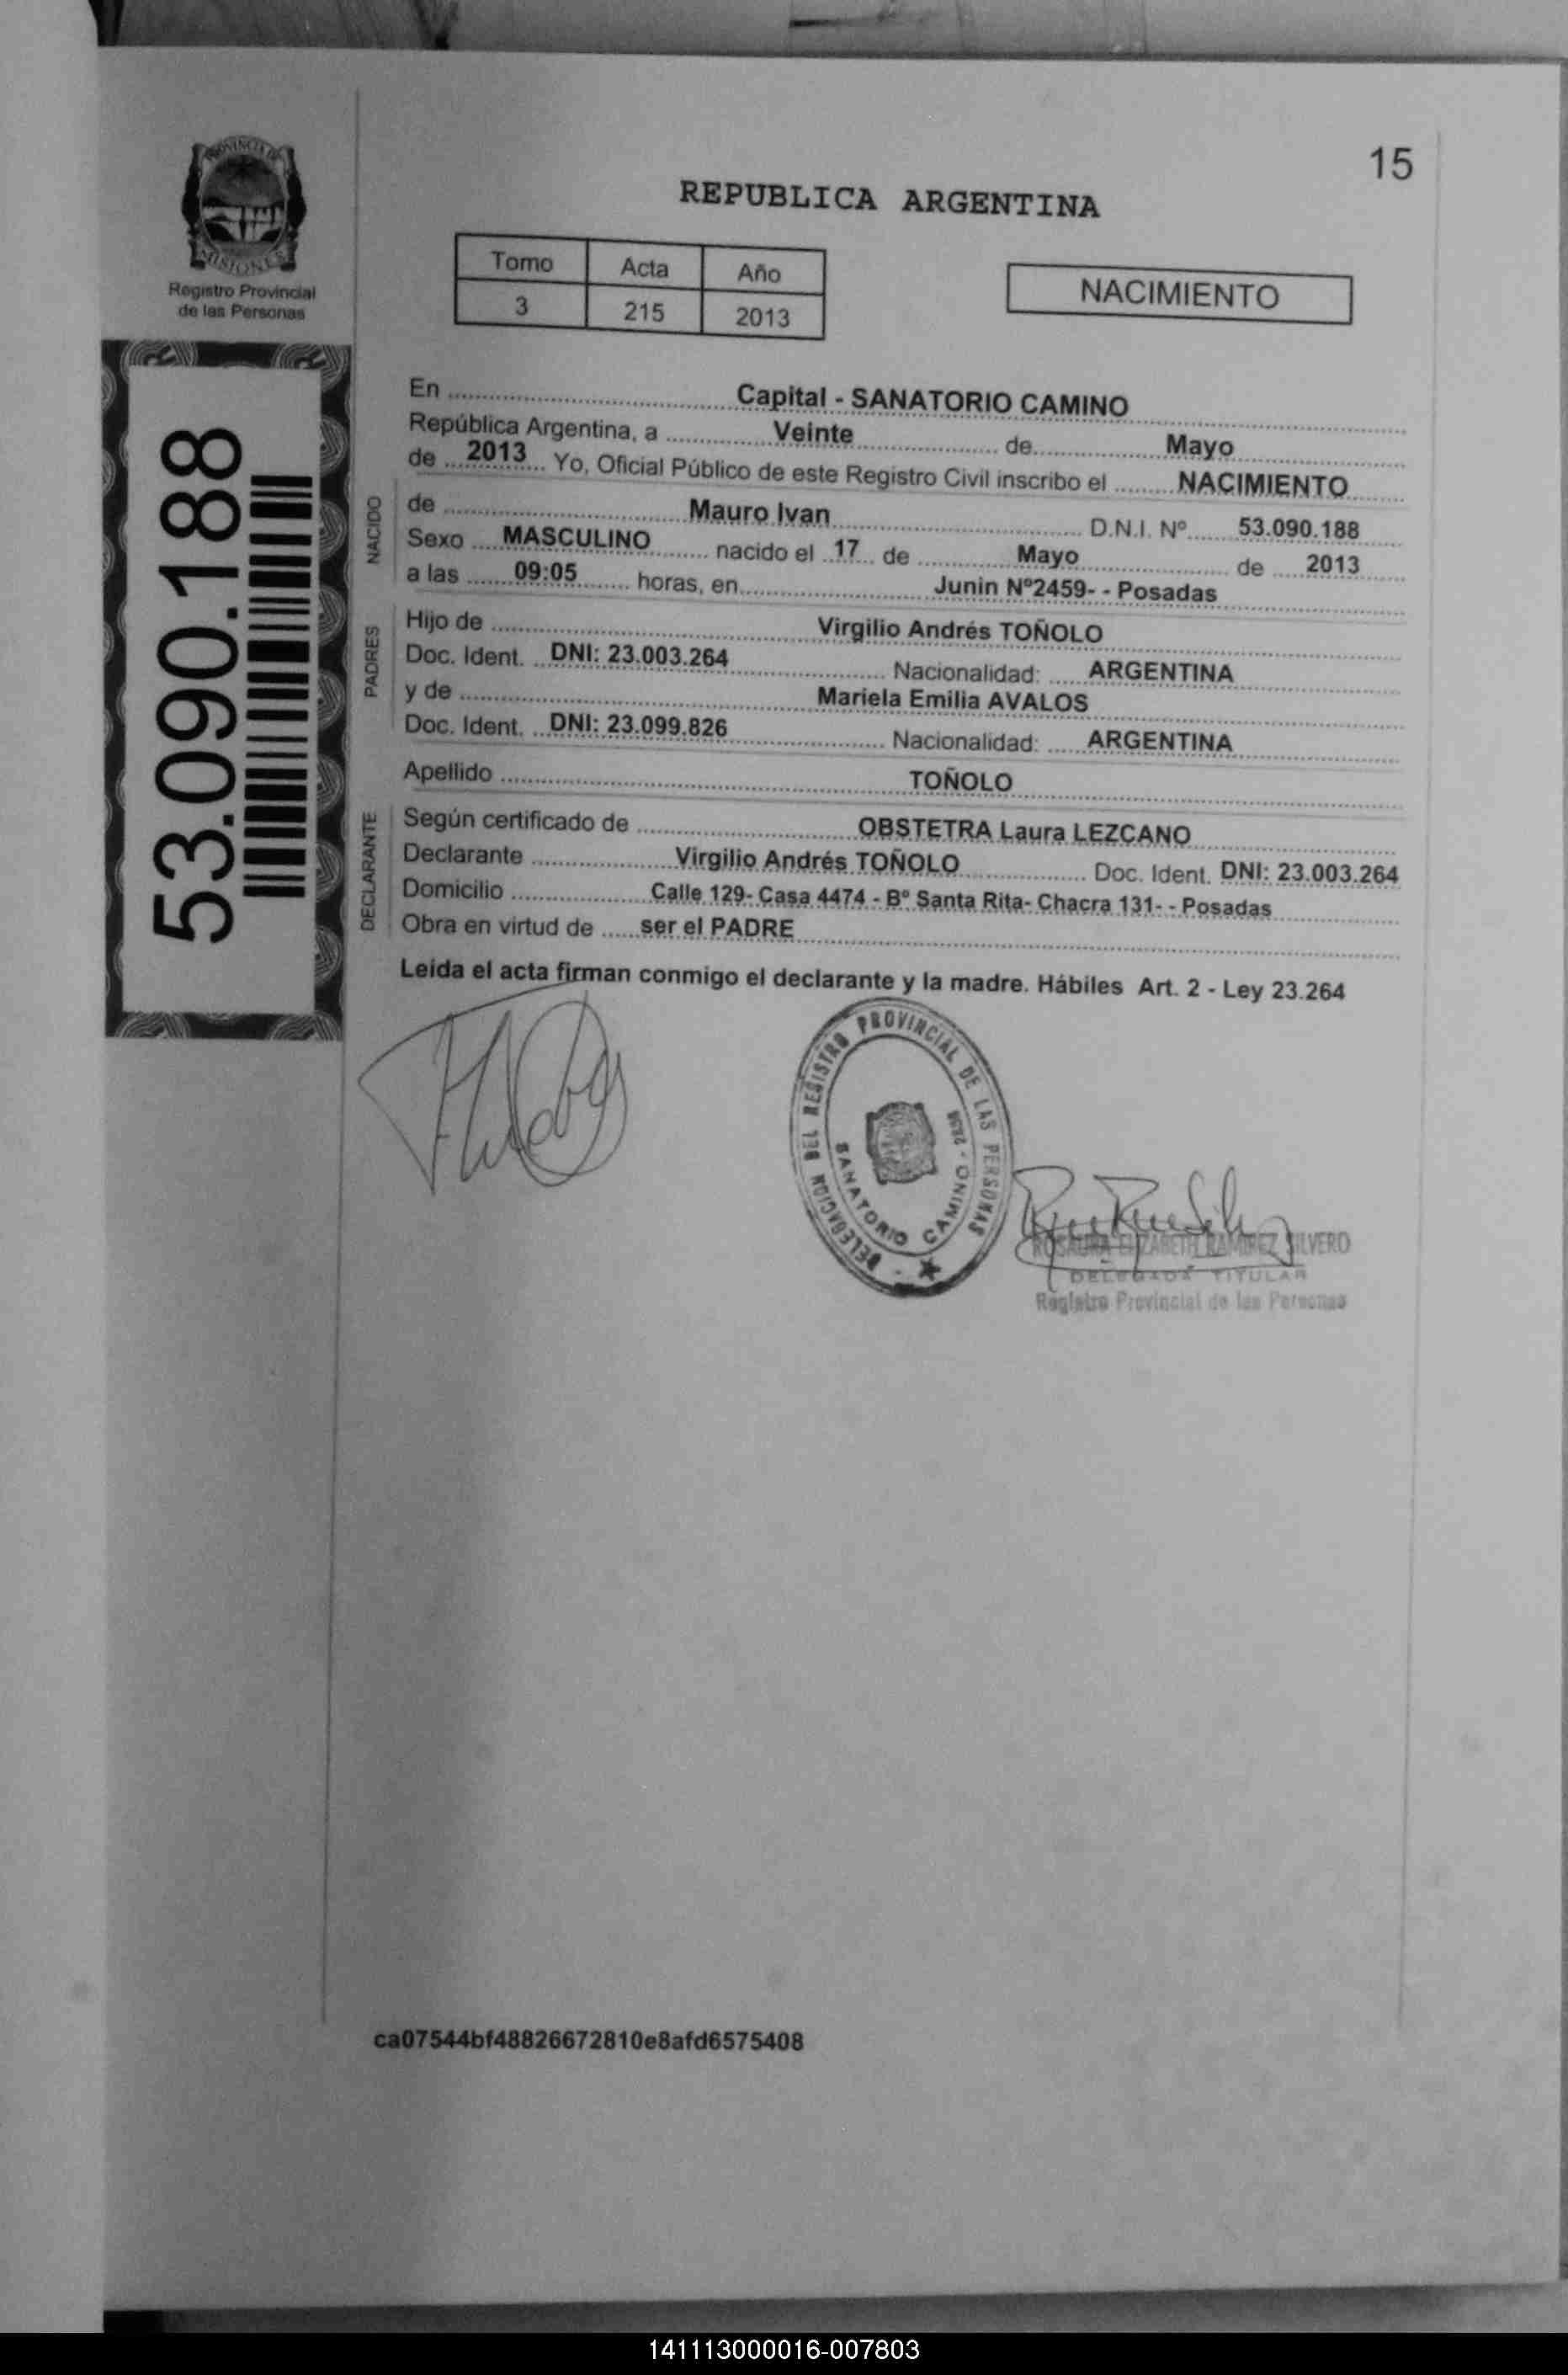 15
PROVINCIA DE
MISIONES
Registro Provincial
de las Personas
REPUBLICA ARGENTINA
Tomo Acta Año
3 215 2013
NACIMIENTO
53.090.188
En Capital - SANATORIO CAMINO
República Argentina, a Veinte de Mayo
de 2013 Yo, Oficial Público de este Registro Civil inscribo el NACIMIENTO
NACIDO
de Mauro Ivan D.N.I. Nº 53.090.188
Sexo MASCULINO nacido el 17 de Mayo de 2013
a las 09:05 horas, en Junin Nº2459- - Posadas
PADRES
Hijo de Virgilio Andrés TOÑOLO
Doc. Ident. DNI: 23.003.264 Nacionalidad: ARGENTINA
y de Mariela Emilia AVALOS
Doc. Ident. DNI: 23.099.826 Nacionalidad: ARGENTINA
Apellido TOÑOLO
DECLARANTE
Según certificado de OBSTETRA Laura LEZCANO
Declarante Virgilio Andrés TOÑOLO Doc. Ident. DNI: 23.003.264
Domicilio Calle 129- Casa 4474 - Bº Santa Rita- Chacra 131- - Posadas
Obra en virtud de ser el PADRE
Leida el acta firman conmigo el declarante y la madre. Hábiles Art. 2 - Ley 23.264
DELEGACION DEL REGISTRO PROVINCIAL DE LAS PERSONAS
SANATORIO CAMINO
ROSAURA ELIZABETH RAMIREZ SILVERO
DELEGADA TITULAR
Registro Provincial de las Personas
ca07544bf48826672810e8afd6575408
141113000016-007803